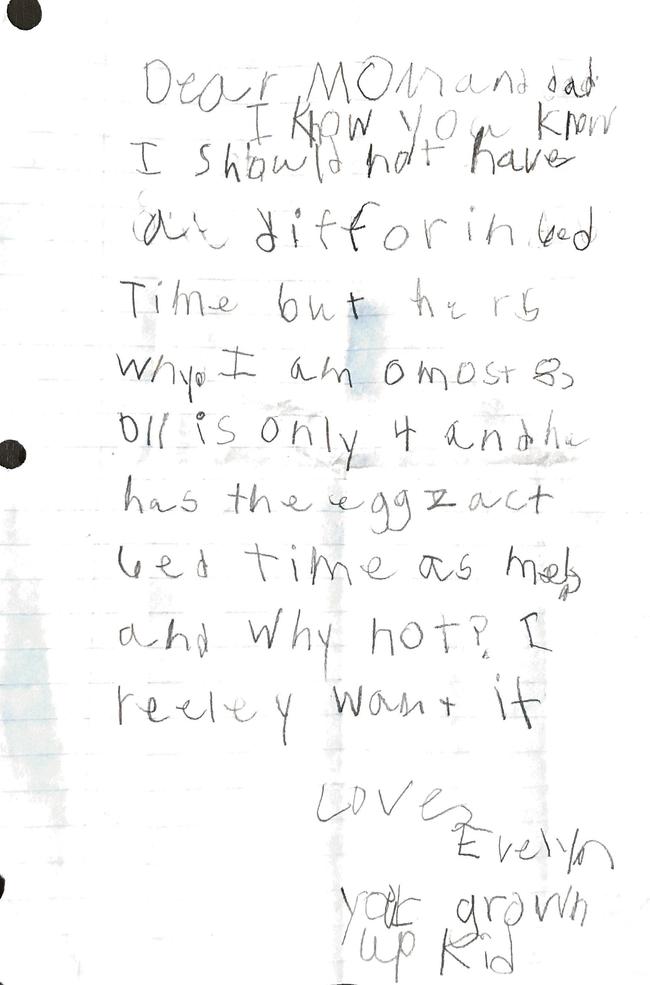 Dear MOM and dad
I know you know
I should not have
a differin bed
Time but hers
why. I am omost 8,
Oll is only 4 and he
has the eggzact
bed time as me,
and why not? I
reeley want it
Love,
Evelyn
your grown
up kid